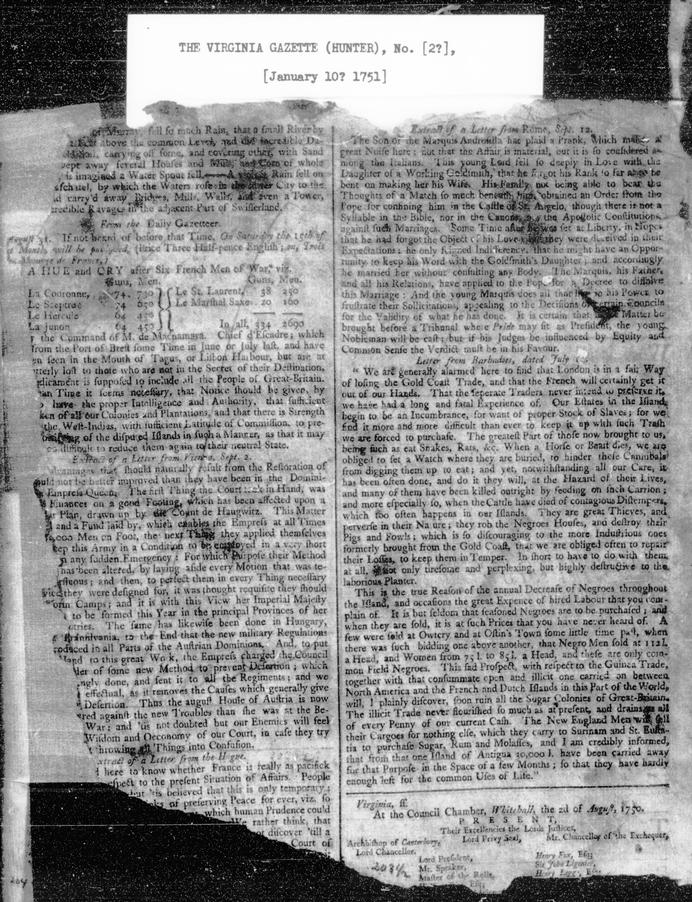 THE VIRGINIA GAZETTE (HUNTER), No. [2?],
[January 10? 1751]
of Murray, fell so much Rain, that a small River by
above the common Level, and did incredible Da-
carrying off some, and covering other, with Sand
swept away several Houses and Mills, and Corn of whole
is imagined a Water Spout fell. A violent Rain fell on
by which the Waters rose in the lower City to the
carry'd away Bridges, Mills, Walls, and even a Tower,
credible Ravages in the adjacent Part of Swisserland.
From the Daily Gazetteer.
31. If not heard of before that Time, On Saturday the 15th of
Month will be (Price Three Half-pence English;
A HUE and CRY after Six French Men of War, viz.
Guns, Men. Guns, Men.
La Couronne, 74 730 Le St. Laurent, 38 250
Le Sceptre 74 Le Marshal Saxe 20 160
Le Hercule 64
La Junon 64 450 In all, 334 2690
the Command of M. de Macnamara, Chief d'Escadre; which
from the Port of Brest some Time in June or July last, and have
en seen in the Mouth of Tagus, or Lisbon Harbour, but are at
utterly lost to those who are not in the Secret of their Destination.
is supposed to include all the People of Great-Britain.
Time it seems necessary, that Notice should be given, by
have the proper Intelligence and Authority, that sufficient
ken of all our Colonies and Plantations, and that there is Strength
the West-Indies, with sufficient Latitude of Commission, to pre-
of the disputed Islands in such a Manner, as that it may
difficult to reduce them again to their neutral State.
Extract of a Letter from Vienna, Sept. 2.
that should naturally result from the Restoration of
could not be better improved than they have been in the Domi
Empress Queen. The first Thing the Court took in Hand, was
Finances on a good Footing, which has been affected upon a
Plan, drawn up by the Count de Haugwitz. This Matter
and a Fund laid by, which enables the Empress at all Times
000 Men on Foot, the next Thing they applied themselves
keep this Army in a Condition to be employed in a very short
any sudden Emergency: For which Purpose their Method
has been altered, by laying aside every Motion that was te-
; and then, to perfect them in every Thing necessary
they were designed for, it was thought requisite they should
form Camps; and it is with this View her Imperial Majesty
to be formed this Year in the principal Provinces of her
The same has likewise been done in Hungary,
to the End that the new military Regulations
in all Parts of the Austrian Dominions. And, to put
Hand to this great Work, the Empress charged the Council
of some new Method to prevent Desertion; which
ngly done, and sent it to all the Regiments; and we
effectual, as it removes the Causes which generally give
Desertion. Thus the august House of Austria is now
red against the new Troubles than she was at the Be-
War; and 'tis not doubted but our Enemies will feel
Wisdom and Oeconomy of our Court, in case they try
throwing all Things into Confusion.
Extract of a Letter from the Hague.
here to know whether France is really as pacifick
spect to the present Situation of Affairs. People
'tis believed that this is only temporary;
of preserving Peace for ever, viz. so
which human Prudence could
rather think, that
not discover 'till a
Court of
Extract of a Letter from Rome, Sept. 12.
The Son of the Marquis Androsilla has plaid a Prank, Which makes a
great Noise here; not that the Affair is material, but it is so considered a-
mong the Italians. This young Lord fell so deeply in Love with the
Daughter of a Working Goldsmith, that he forgot his Rank so far as to be
bent on making her his Wife. His Family not being able to bear the
Thoughts of a Match so much beneath him, obtained an Order from the
Pope for confining him in the Castle of St. Angelo, though there is not a
Syllable in the Bible, nor in the Canons, the Apostolic Constitutions,
against such Marriages. Some Time after he was set at Liberty, in Hopes
that he had forgot the Object of his Love they were deceived in their
Expectations; he only Indifference, that he might have an Oppor-
tunity to keep his Word with the Goldsmith's Daughter; and accordingly
he married her without consulting any Body. The Marquis, his Father,
and all his Relations, have applied to the Pope for a Decree to dissolve
this Marriage: And the young Marquis does all that in his Power to
frustrate their Sollicitations, appealing to the Decisions of certain Councils
for the Validity of what he has done. It is certain that Matter be
brought before a Tribunal where Pride may sit as President, the young
Nobleman will be cast; but if his Judges be influenced by Equity and
Common Sense the Verdict must be in his Favour.
Letter from Barbadoes, dated July
" We are generally alarmed here to find that London is in a fair Way
of losing the Gold Coast Trade, and that the French will certainly get it
out of our Hands. That the seperate Traders never intend to preserve it,
we have had a long and fatal Experience of. Our Estates in the Island
begin to be an Incumbrance, for want of proper Stock of Slaves; for we
find it more and more difficult than ever to keep it up with such Trash
we are forced to purchase. The greatest Part of those now brought to us,
being such as eat Snakes, Rats, &c. When a Horse or Beast dies, we are
obliged to set a Watch where they are buried, to hinder these Cannibals
from digging them up to eat; and yet, notwithstanding all our Care, it
has been often done, and do it they will, at the Hazard of their Lives,
and many of them have been killed outright by feeding on such Carrion;
and more especially so, when the Cattle have died of contagious Distempers,
which too often happens in our Island. They are great Thieves, and
perverse in their Nature; they rob the Negroes Houses, and destroy their
Pigs and Fowls; which is so discouraging to the more Industrious ones
formerly brought from the Gold Coast, that we are obliged often to repair
their Losses, to keep them in Temper. In short to have to do with them
at all, is not only tiresome and perplexing, but highly destructive to the
laborious Planter.
This is the true Reason of the annual Decrease of Negroes throughout
the Island, and occasions the great Expence of hired Labour that you com-
plain of. It is but seldom that seasoned Negroes are to be purchased; and
when they are sold, it is at such Prices that you have never heard of. A
few were sold at Owtery and at Ostin's Town some little time past, when
there was such bidding one above another, that Negro Men sold at 112 l.
a Head, and Women from 75 l. to 85 l. a Head, and these are only com-
mon Field Negroes. This sad Prospect, with respect to the Guinea Trade,
together with that consummate open and illicit one carried on between
North America and the French and Dutch Islands in this Part of the World,
will, I plainly discover, soon ruin all the Sugar Colonies of Great-Britain.
The illicit Trade never flourished so much as at present, and drains us all
of every Penny of our current Cash. The New England Men will sell
their Cargoes for nothing else, which they carry to Surinam and St. Eusta-
tia to purchase Sugar, Rum and Molasses, and I am credibly informed,
that from that one Island of Antigua 20,000 l. have been carried away
for that Purpose in the Space of a few Months; so that they have hardly
enough left for the common Uses of Life."
Virginia, ss.
At the Council Chamber, Whitehall, the 2d of August, 1750.
P R E S E N T,
Their Excellencies the Lords Justices,
Archbishop of Canterbury, Lord Privy Seal, Mr. Chancellor of the Exchequer,
Lord Chancellor.
Lord President, Henry Fox, Esq;
Mr. Speaker, Sir John Ligonier,
Master of the Rolls, Henry Esq;
Esq;